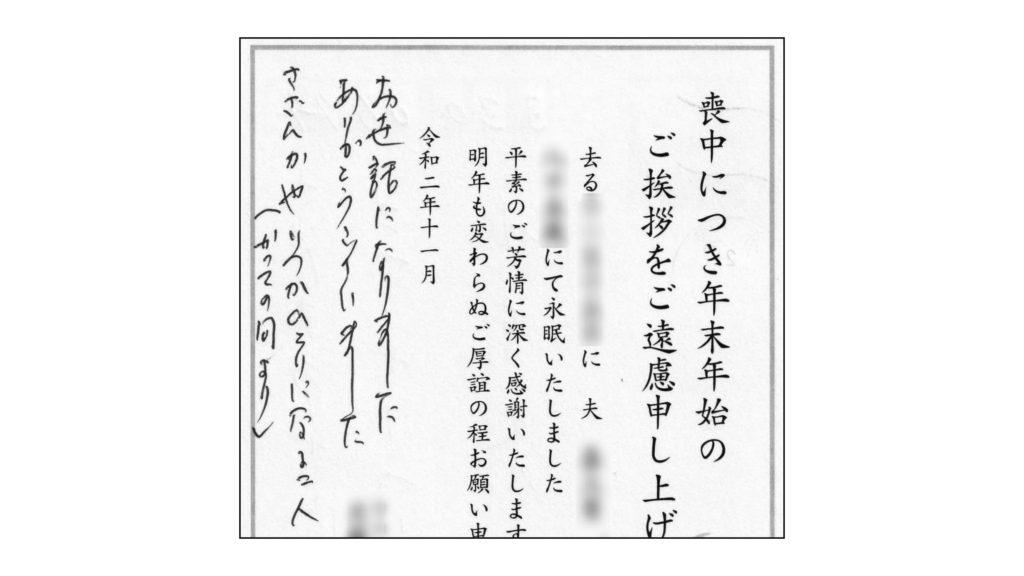 喪中につき年末年始の
ご挨拶をご遠慮申し上げ
去る に 夫
にて永眠いたしました
平素のご芳情に深く感謝いたします
明年も変わらぬご厚誼の程お願い申
令和二年十一月
お世話になりました
ありがとうございました
さざんかやいつかひとりになる二人
(かつての句より)